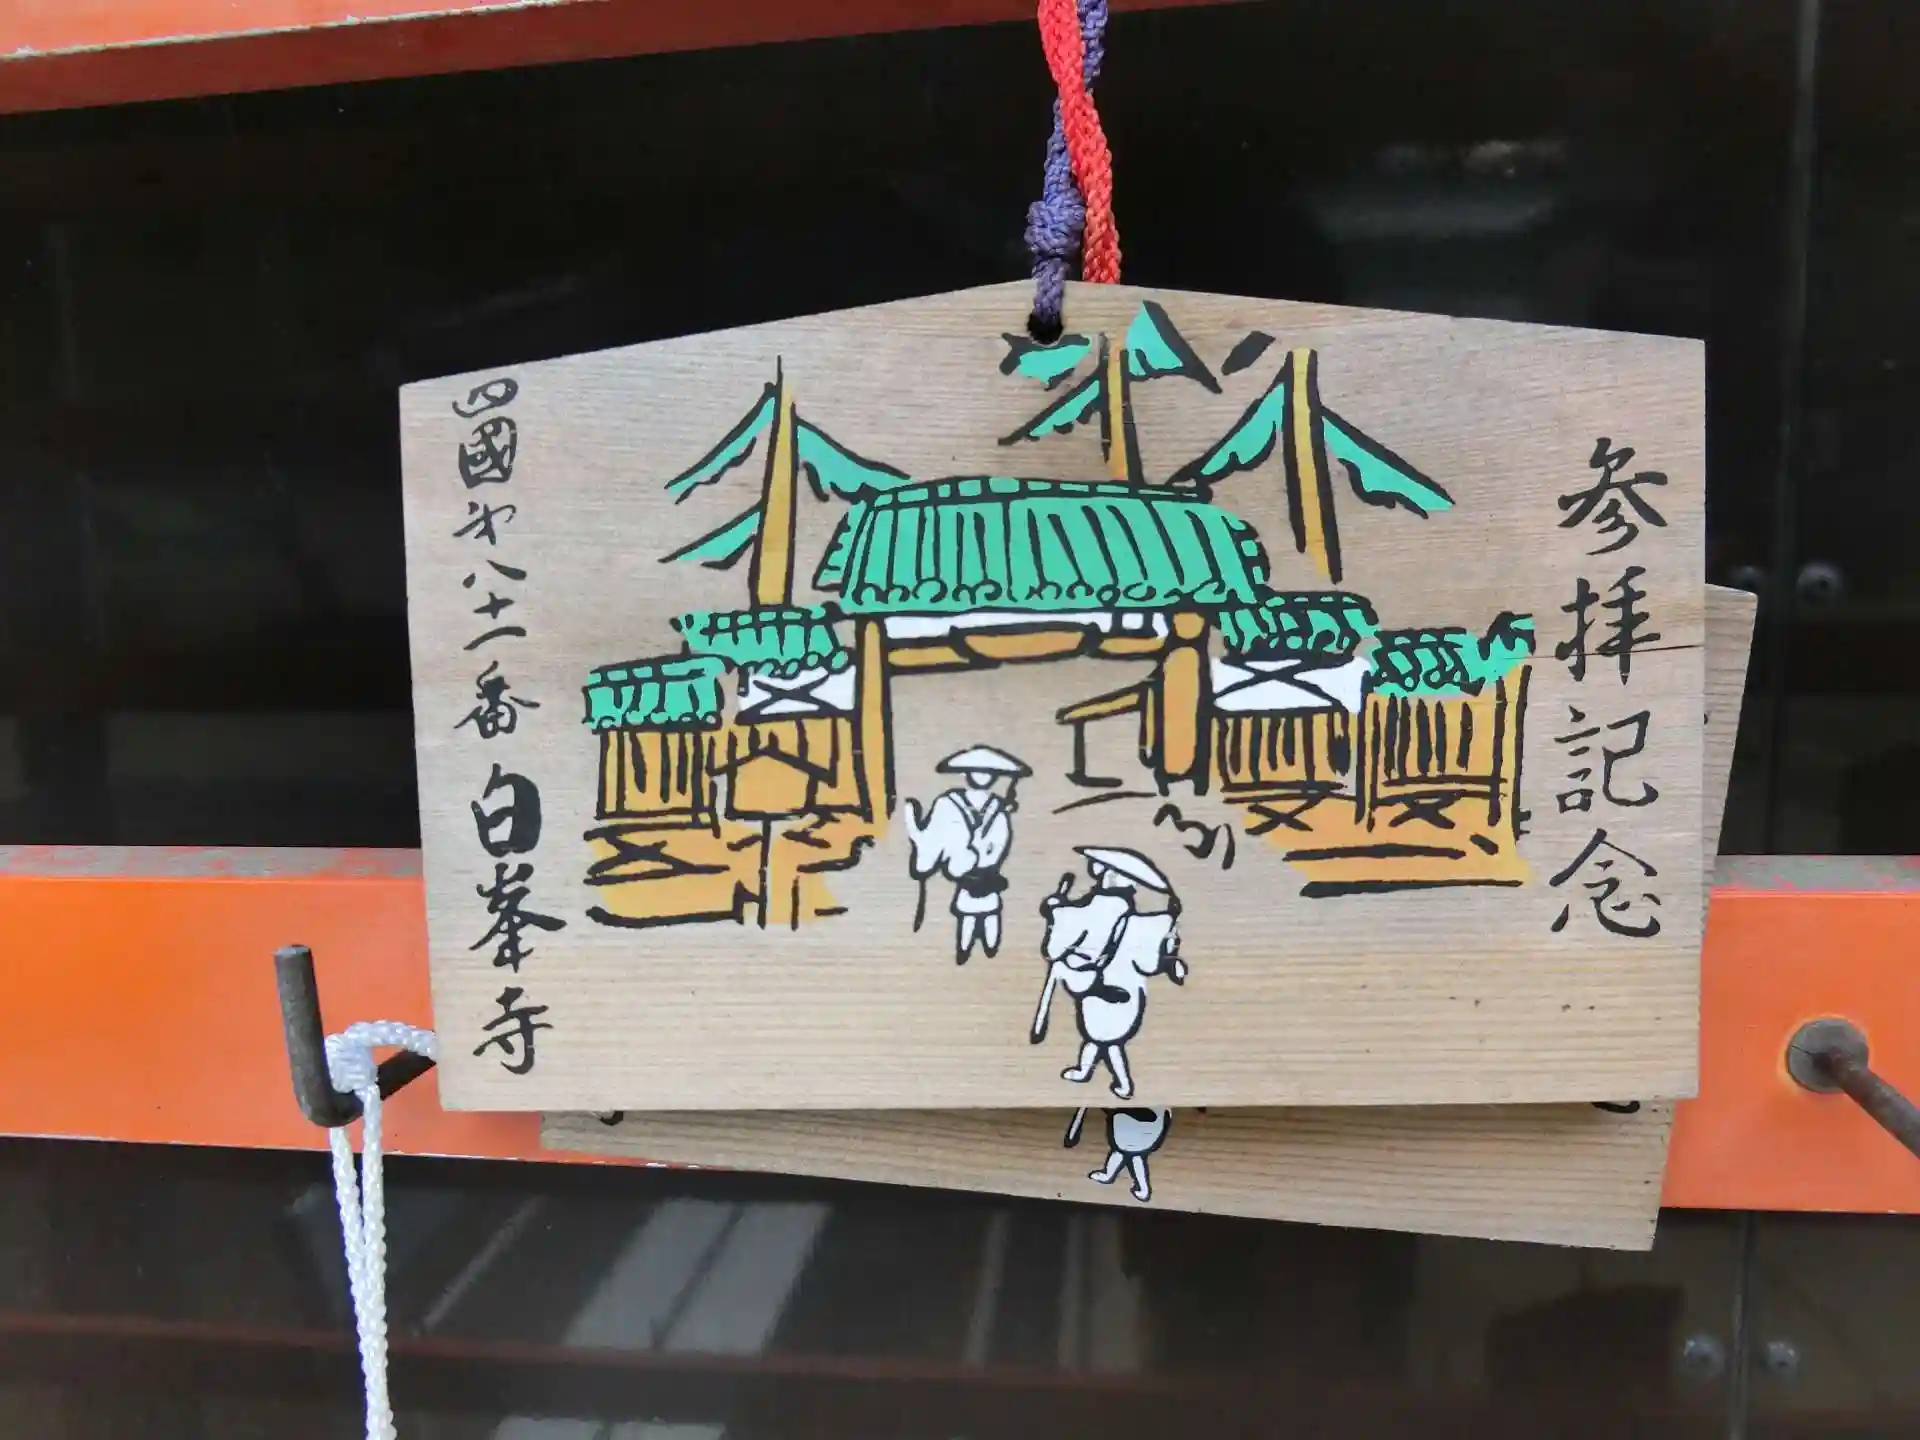 参拝記念
四國第八十一番 白峯寺